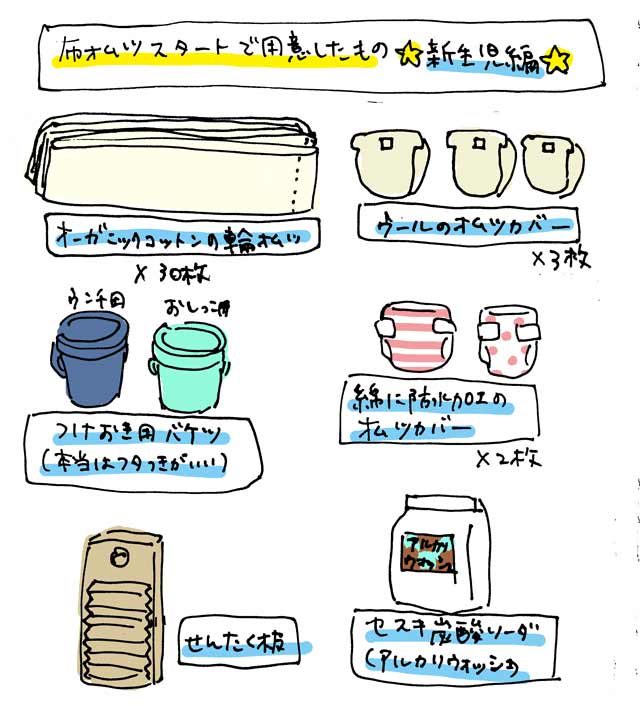 布オムツスタートで用意したもの ☆新生児編☆
オーガニックコットンの輪オムツ
×30枚
ウールのオムツカバー
×3枚
ウンチ用
おしっこ用
つけおき用バケツ
(本当はフタつきがいい)
綿に防水加工の
オムツカバー
×2枚
せんたく板
アルカリ
ウォッシュ
セスキ炭酸ソーダ
(アルカリウォッシュ)